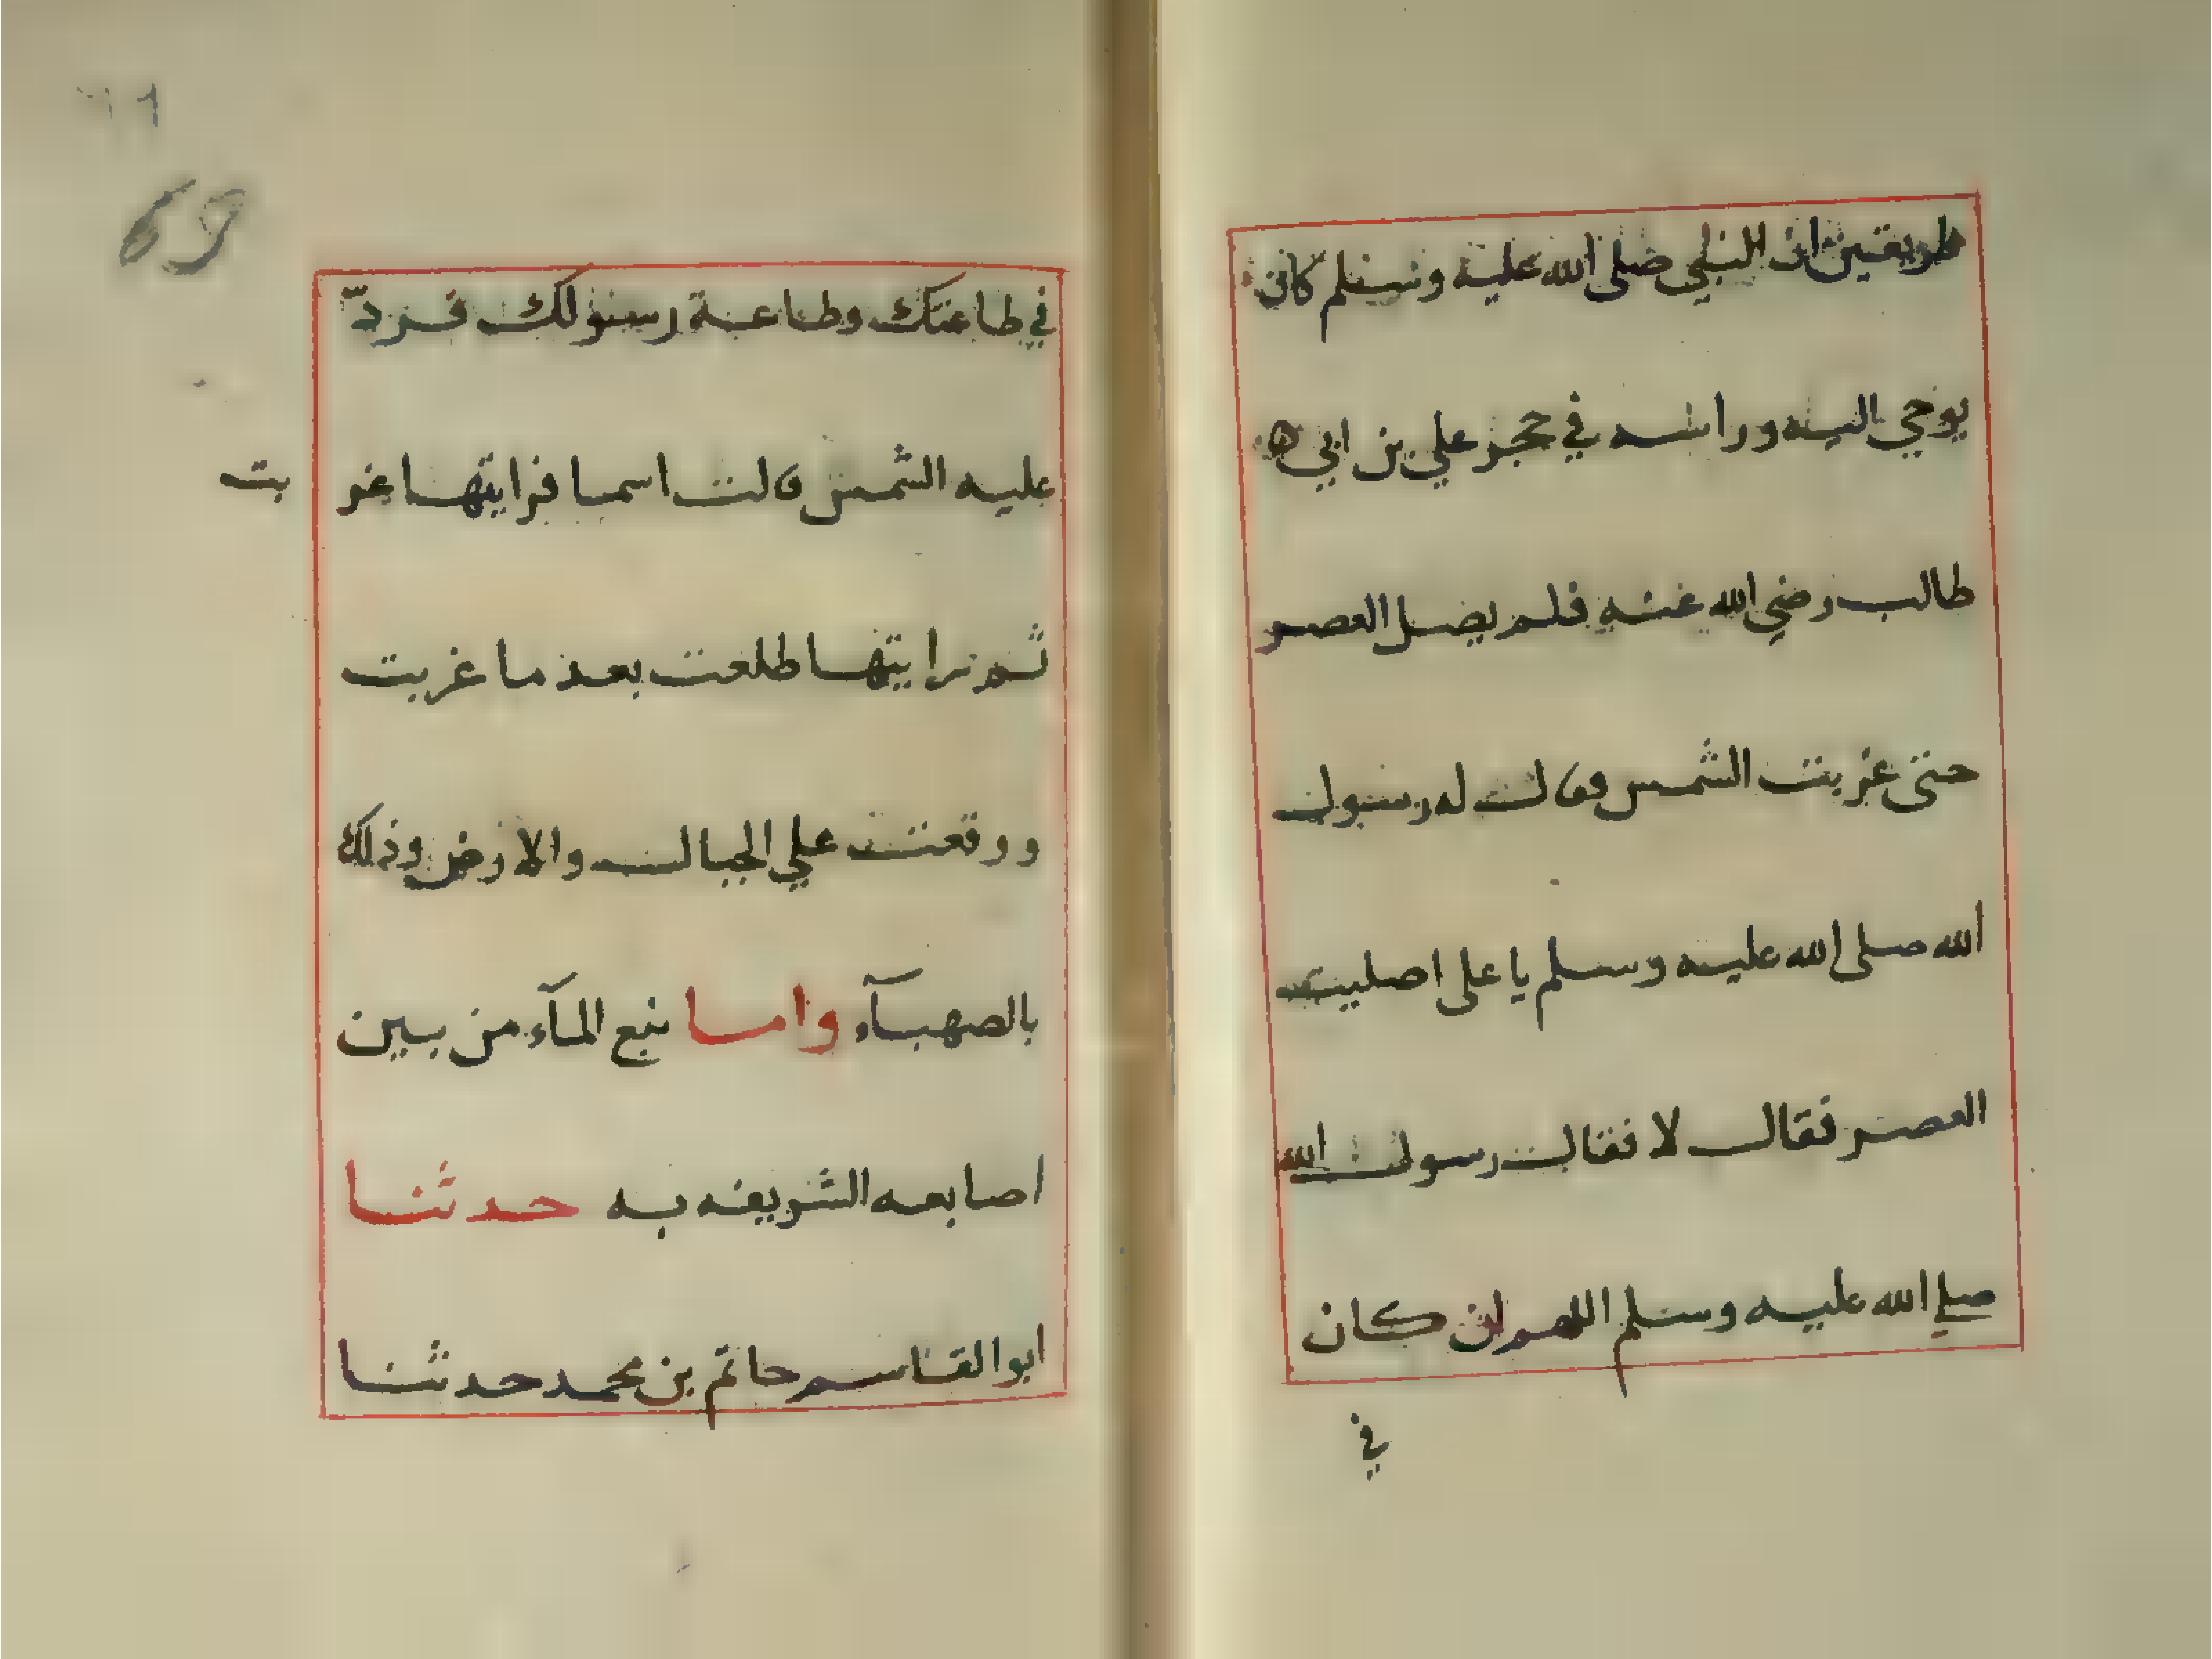 طريقين ان النبي صلى الله عليه وسلم كان
يوحي اليه وراسه في حجر علي بن ابي
طالب رضي الله عنه فلم يصل العصر
حتى غربت الشمس وقال له رسول
الله صلى الله عليه وسلم يا على اصليت
العصر فقال لا فقال رسول الله
صلي الله عليه وسلم اللهم ان كان
في
٦٦
في طاعتك وطاعة رسولك فردّ
عليه الشمس قالت اسما فرايتها غربت
ثم رايتها طلعت بعد ما غربت
ووقعت علي الجبال والارض وذلك
بالصهبآء واما نبع المآء من بين
اصابعه الشريفه به حدثنا
ابو القاسم حاتم بن محمد حدثنا